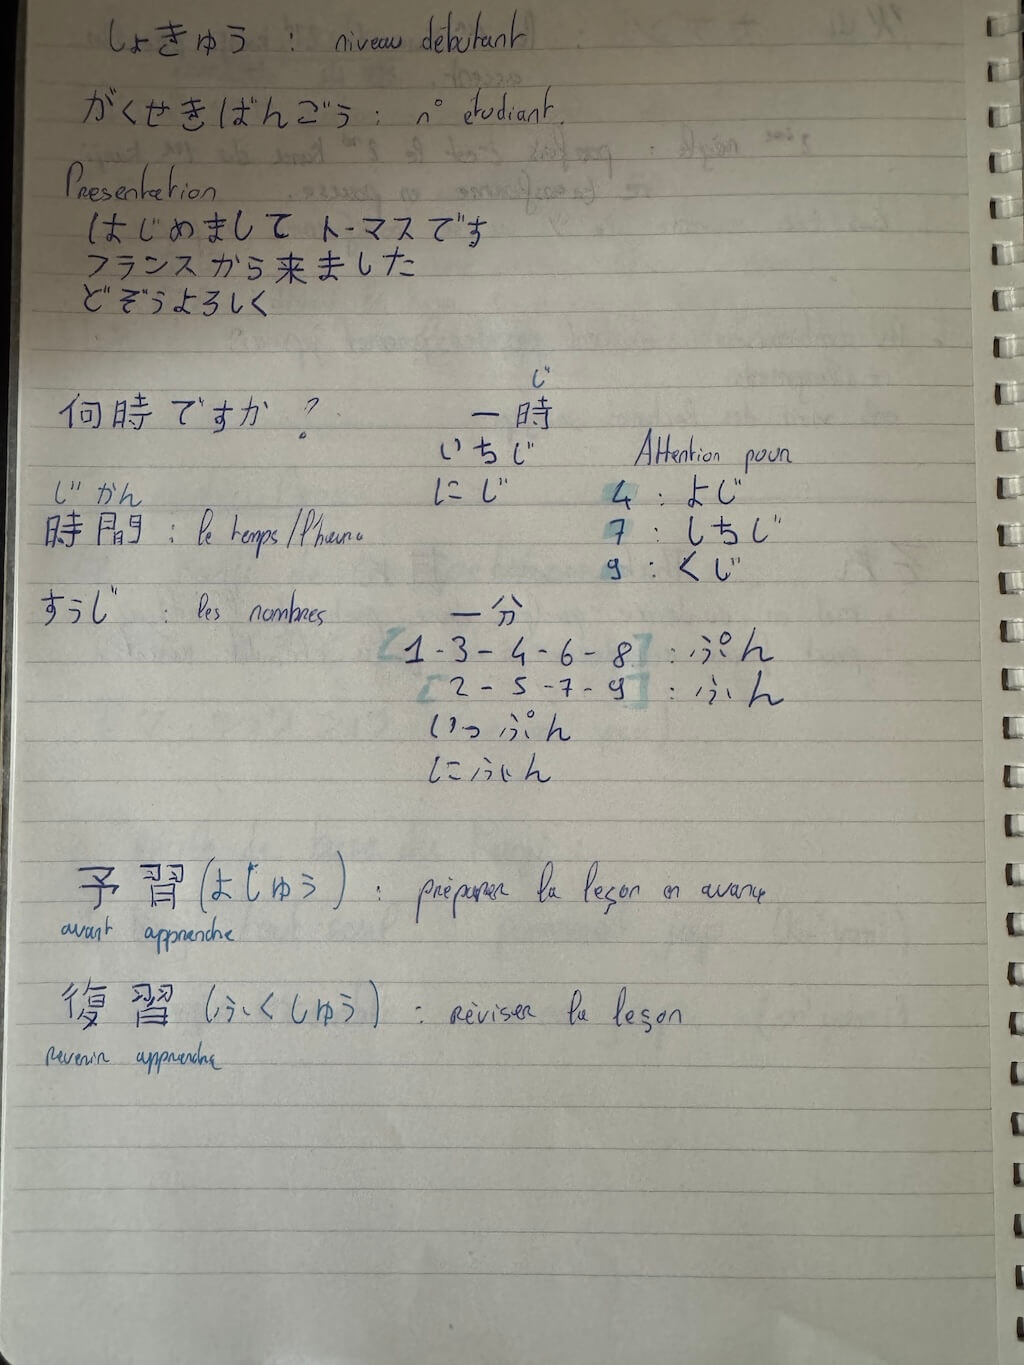 しょきゅう : niveau débutant
がくせきばんごう : n° étudiant.
Presentation
はじめまして トーマスです
フランスから来ました
どぞうよろしく
じ
何時ですか ? 一時
いちじ Attention pour
じかん にじ 4 : よじ
時間 : le temps/l'heure 7 : しちじ
9 : くじ
すうじ : les nombres 一分
[1 - 3 - 4 - 6 - 8] : ぷん
[2 - 5 - 7 - 9] : ふん
いっぷん
にふん
予習 (よしゅう) : préparer la leçon en avance
avant apprendre
復習 (ふくしゅう) : réviser la leçon
revenir apprendre